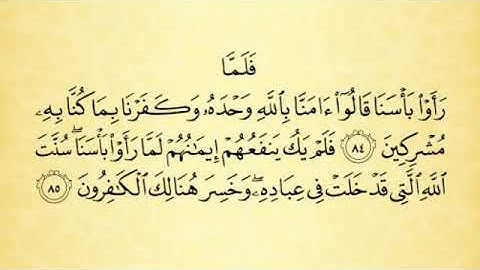 فَلَمَّا
رَأَوْا۟ بَأْسَنَا قَالُوٓا۟ ءَامَنَّا بِٱللَّهِ وَحْدَهُۥ وَكَفَرْنَا بِمَا كُنَّا بِهِۦ
مُشْرِكِينَ ٨٤ فَلَمْ يَكُ يَنفَعُهُمْ إِيمَـٰنُهُمْ لَمَّا رَأَوْا۟ بَأْسَنَا ۖ سُنَّتَ
ٱللَّهِ ٱلَّتِى قَدْ خَلَتْ فِى عِبَادِهِۦ ۖ وَخَسِرَ هُنَالِكَ ٱلْكَـٰفِرُونَ ٨٥